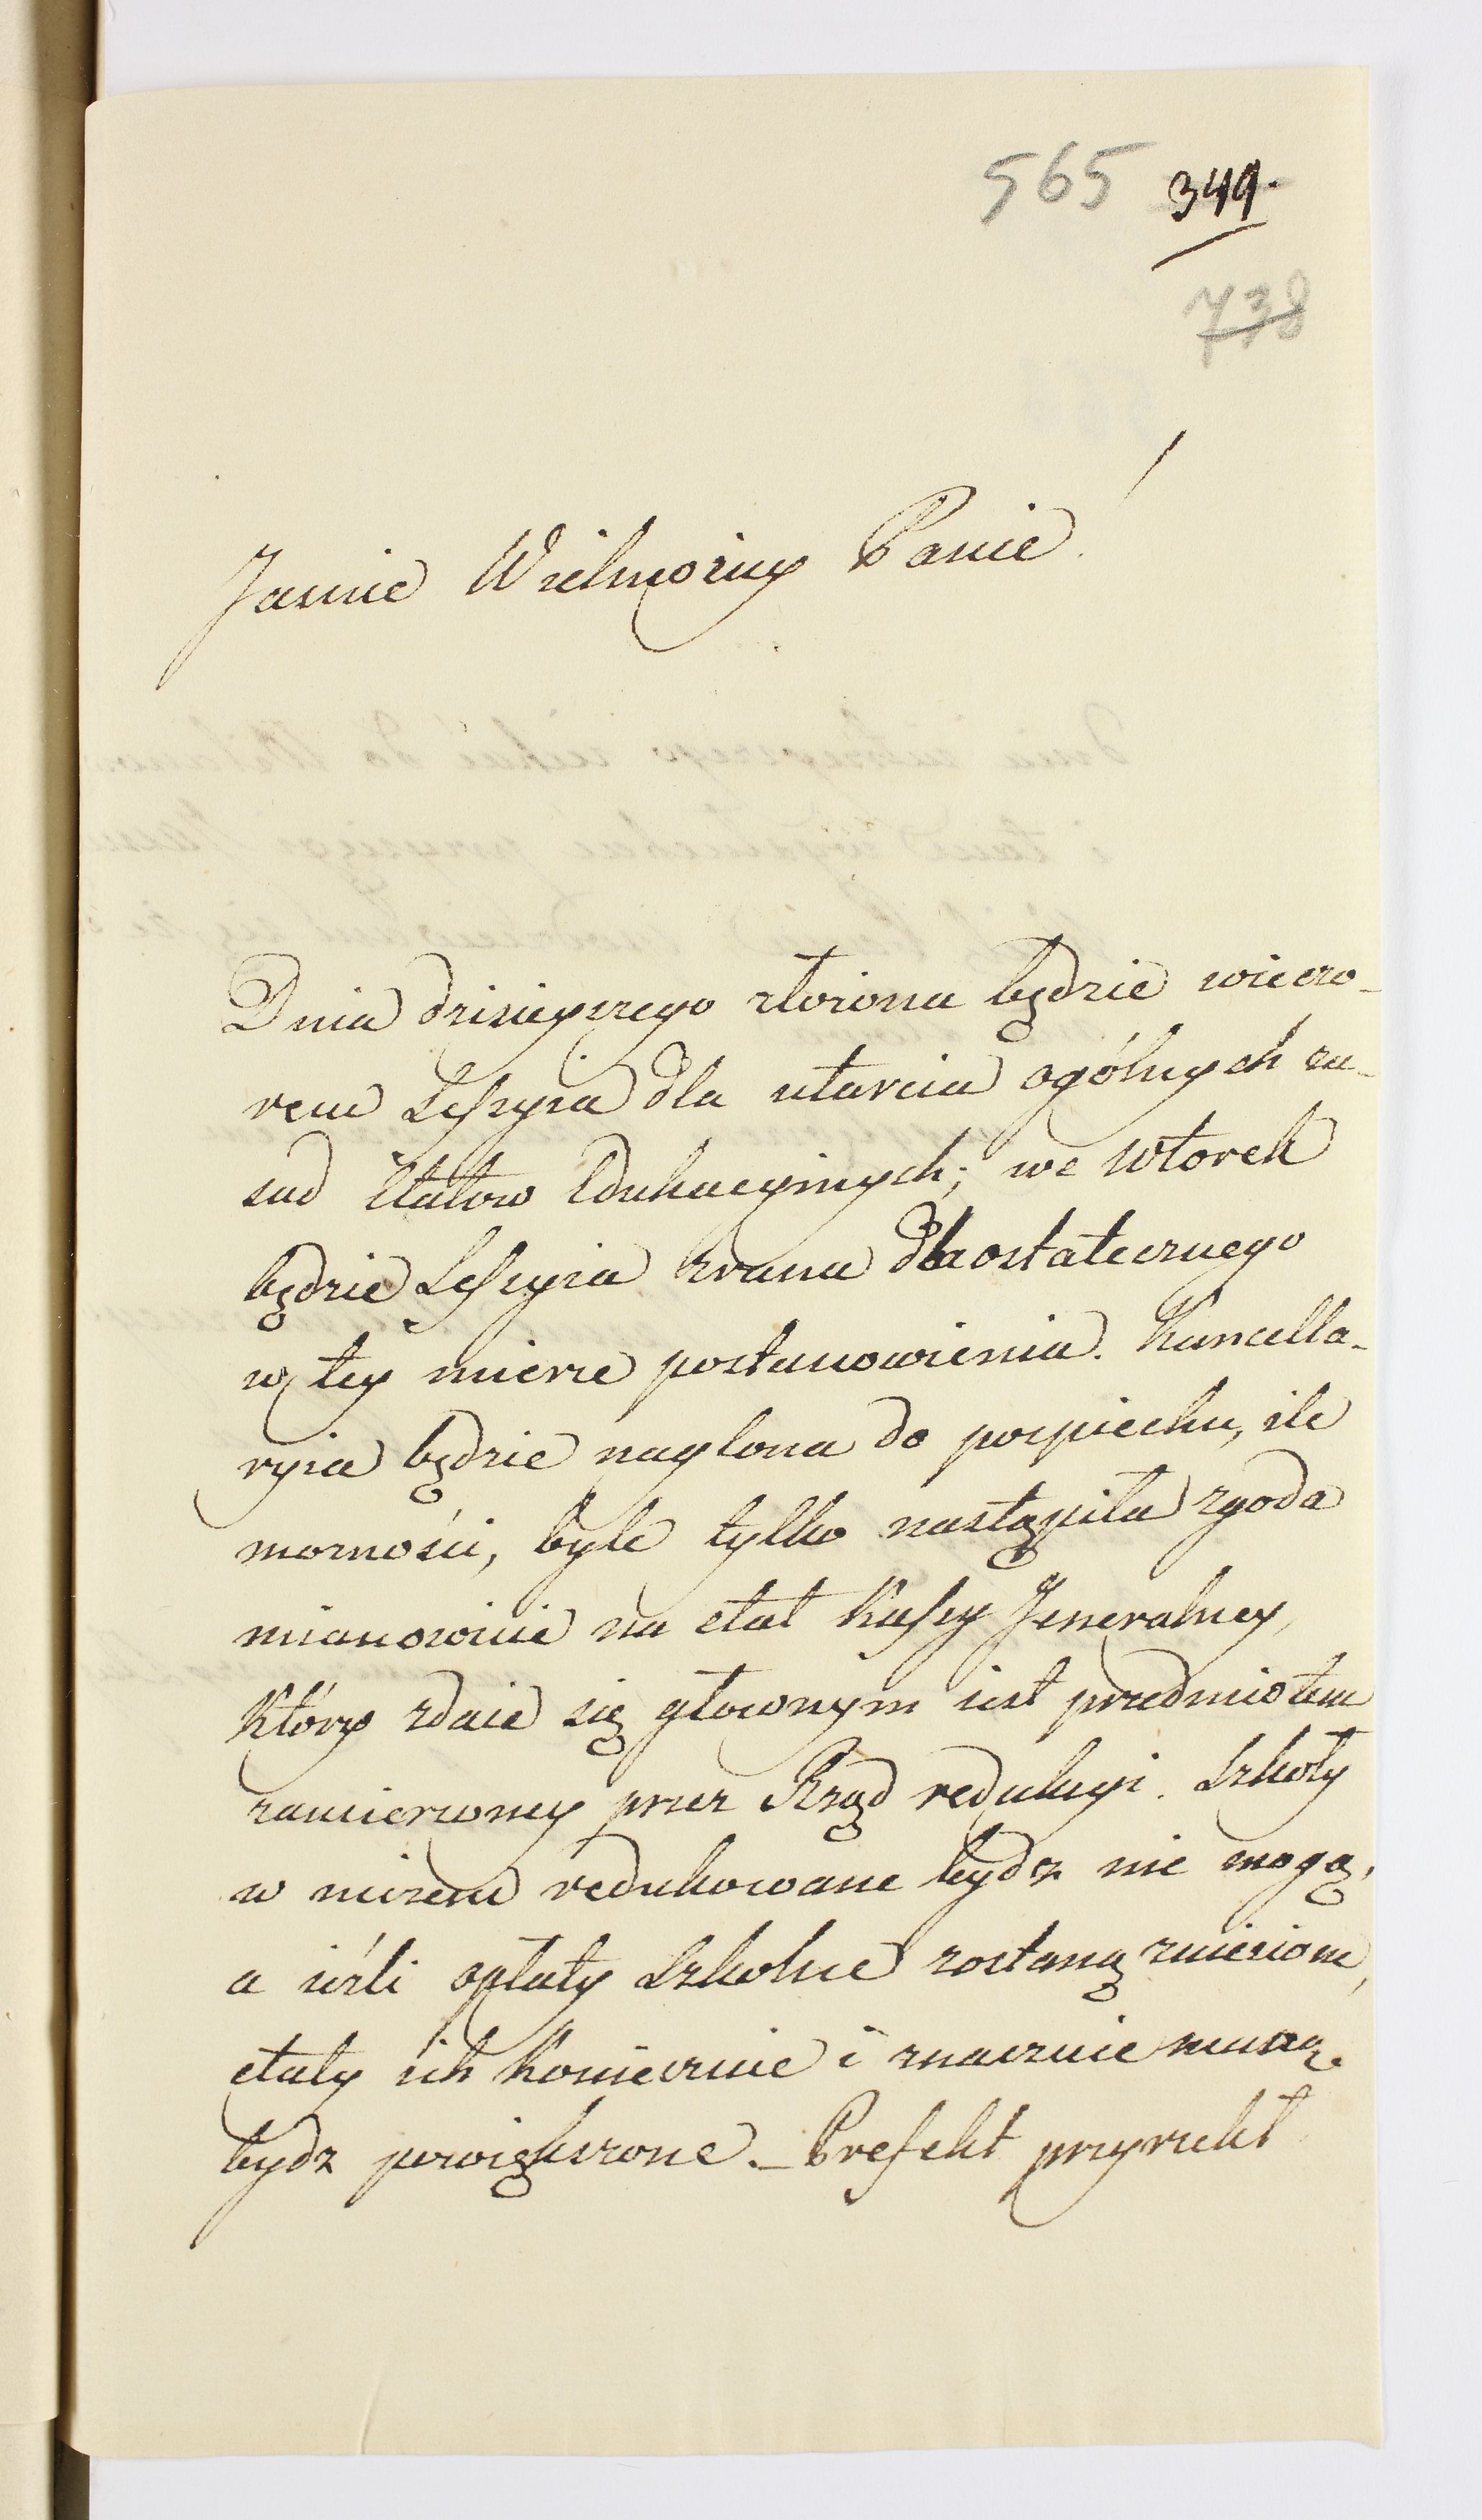 565 349.
738
Jaśnie Wielmożny Panie!
Dnia dzisieyszego złożona będzie wieczo-
rem Sessyia dla utarcia ogólnych za-
sad Etatow Edukacyinych; we Wtorek
będzie Sessyia zwana dla ostatecznego
w tey mierze postanowienia. Kancella-
ryia będzie naglona do pospiechu, ile
mozności, byle tylko nastąpiła zgoda
mianowicie na etat Kassy Jeneralney,
który zdaie się głownym iest przedmiotem
zamierzoney przez Rząd redukcyi. Szkoły
w niczem redukowane bydz nie mogą,
a ieśli opłaty Szkolne zostaną zniesione,
etaty ich koniecznie i znacznie muszą
bydz powiększone. — Prefekt przyrzekł